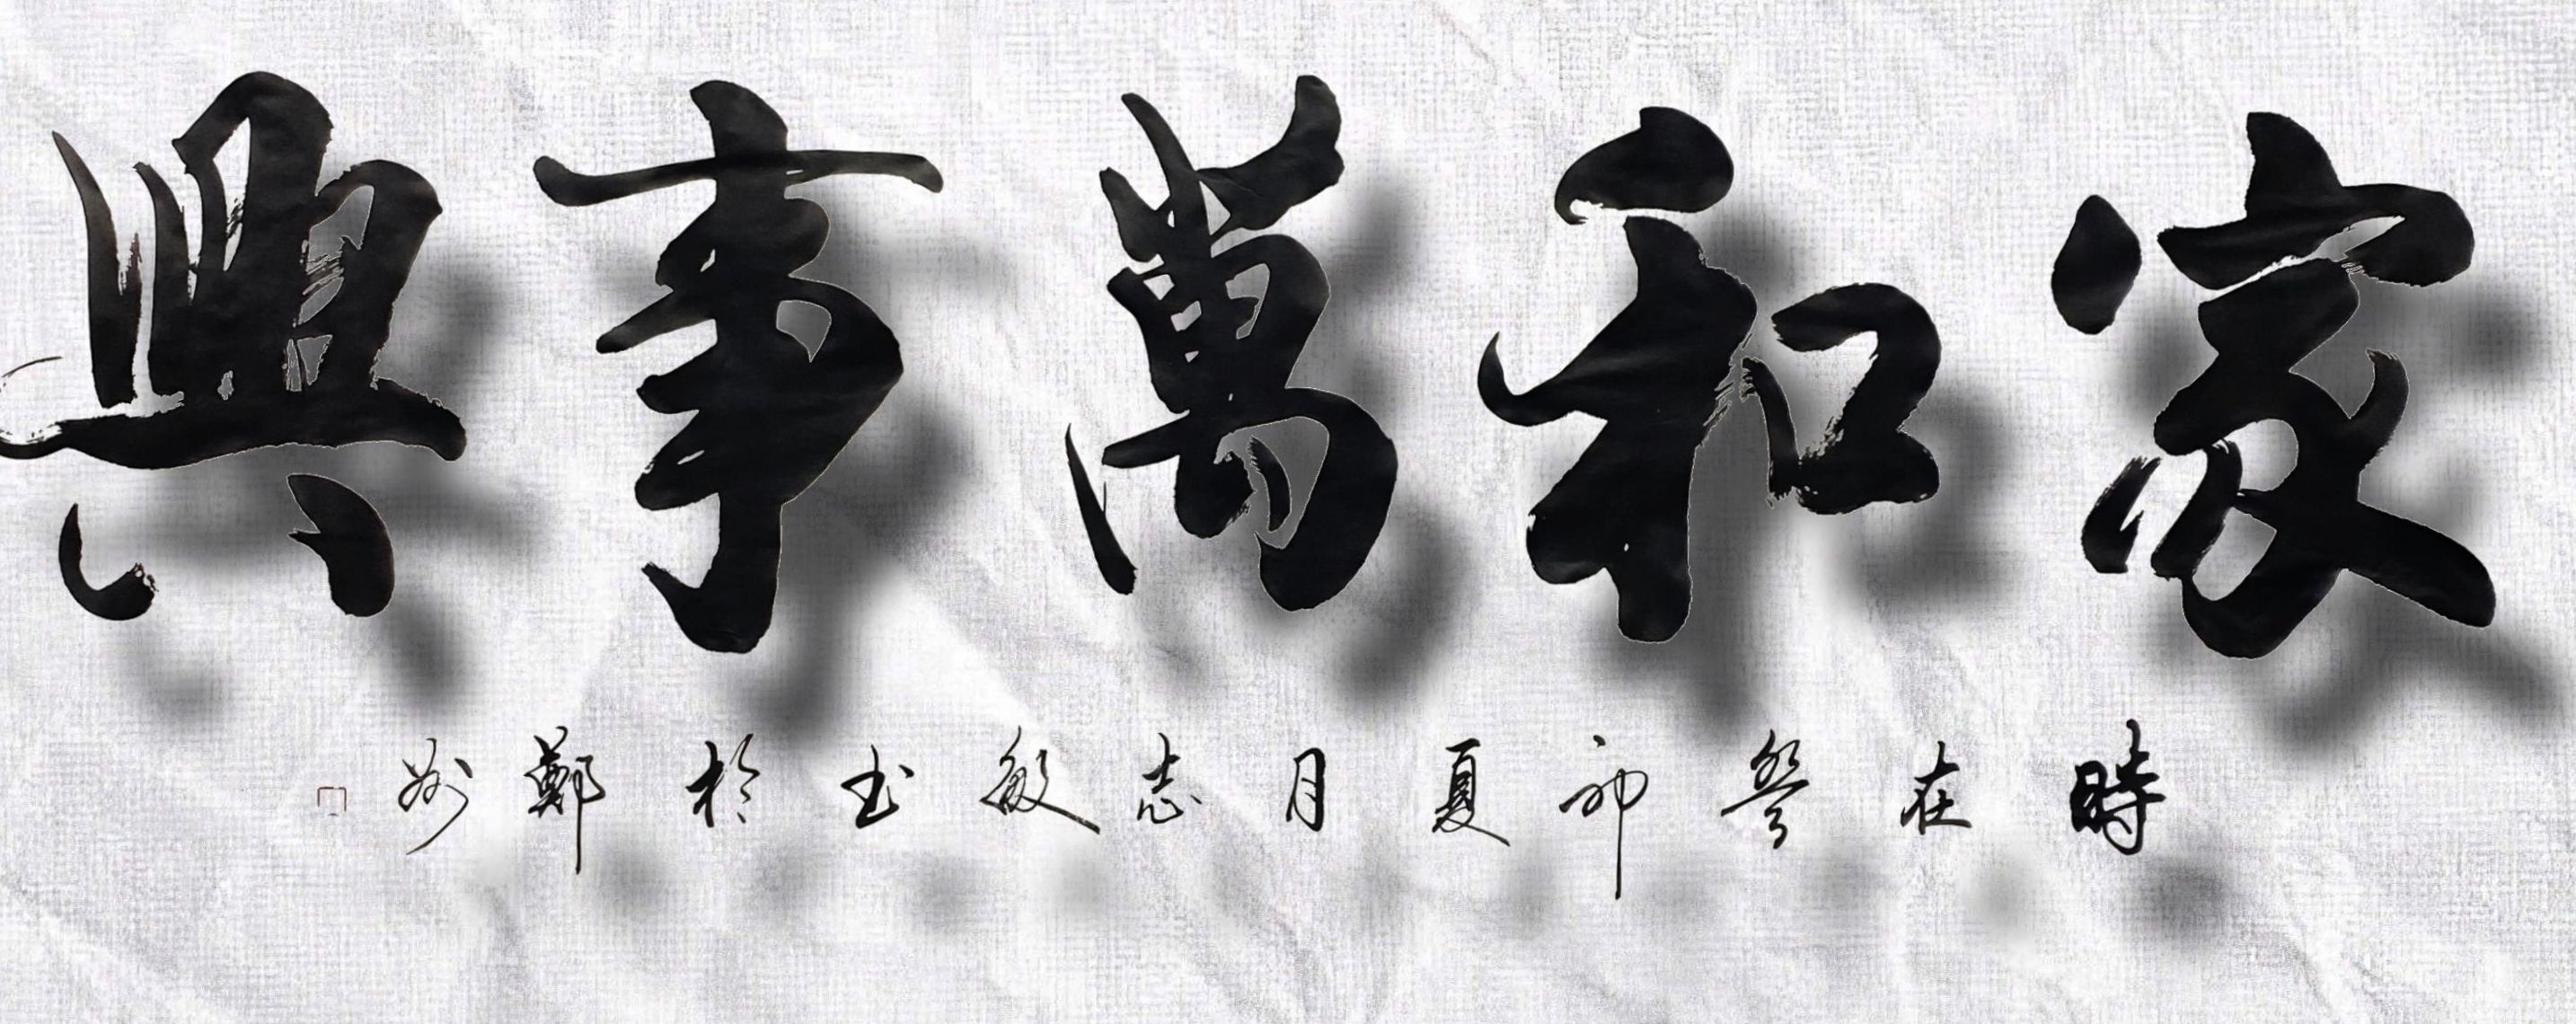 家和萬事興
時在癸卯夏月志敏書於鄭州